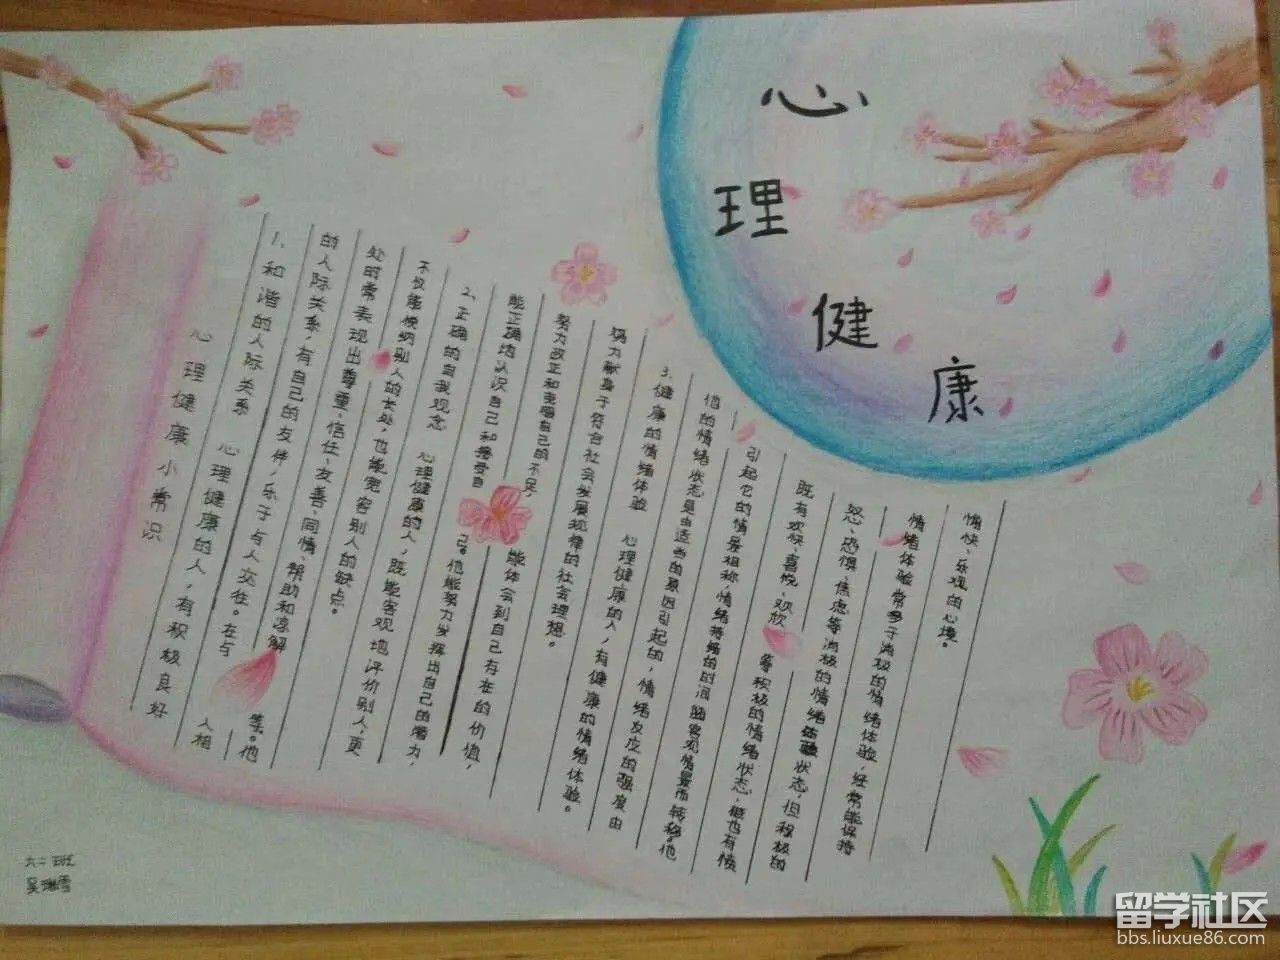 心理健康
心理健康小常识
1、和谐的人际关系 心理健康的人，有积极良好
的人际关系，有自己的友伴，乐于与人交往。在与人相
处时常表现出尊重、信任、友善、同情、帮助和谅解等。他
不仅能悦纳别人的长处，也能宽容别人的缺点。
2、正确的自我观念 心理健康的人，既能客观地评价别人，更
能正确地认识自己和接受自己。他能努力发挥出自己的潜力，
努力改正和自己的不足，能体会到自己存在的价值，
努力献身于符合社会发展规律的社会理想。
3、健康的情绪体验 心理健康的人，有健康的情绪体验。
他的情绪状态是由适当的原因引起的，情绪反应的强度由
引起它的情景相称，情绪持续的时间随客观情景而转移。他
既有欢快、喜悦、欢欣等积极的情绪状态，也有愤
怒、恐惧、焦虑等消极的情绪体验状态，但积极的
情绪体验常多于消极的情绪体验，经常能保持
愉快、乐观的心境。
六二班
吴琳雪
留学社区
bbs.liuxue86.com